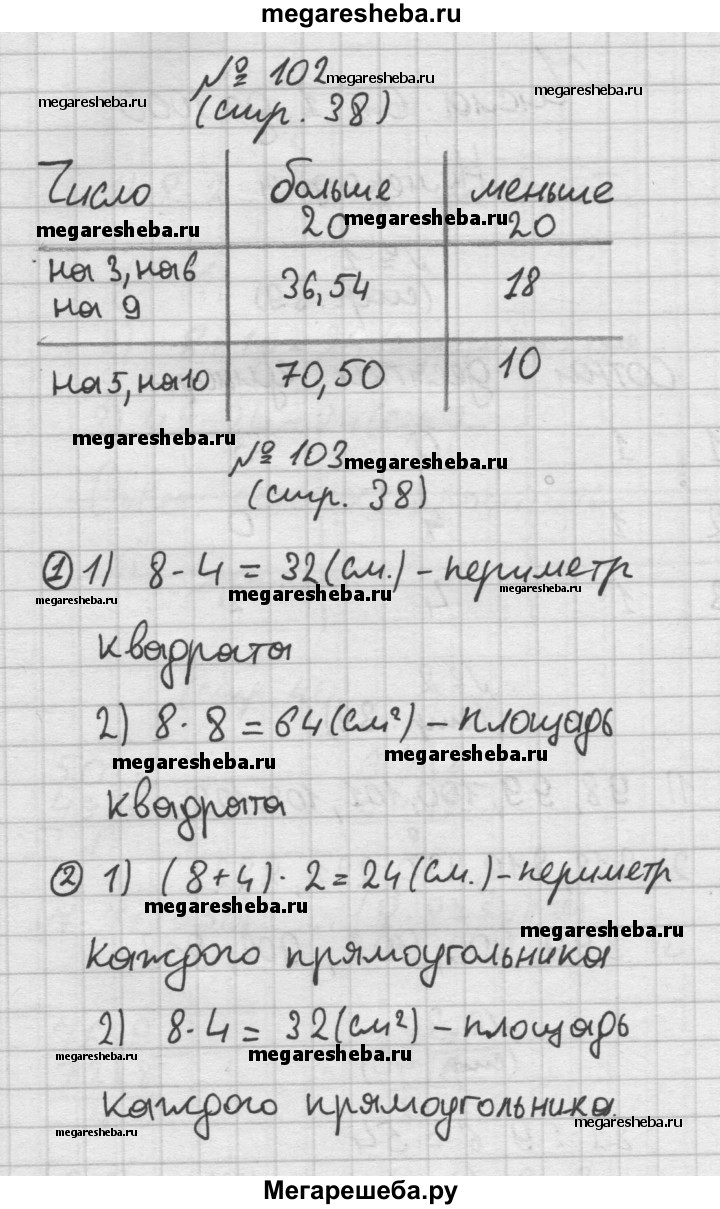 megaresheba.ru
№ 102 megaresheba.ru
megaresheba.ru (стр. 38) megaresheba.ru
Число больше 20 меньше 20
megaresheba.ru megaresheba.ru
на 3, на 6 36, 54 18
на 9
на 5, на 10 70, 50 10
megaresheba.ru
№ 103 megaresheba.ru
(стр. 38)
① 1) 8 · 4 = 32 (см.) – периметр
megaresheba.ru megaresheba.ru megaresheba.ru
квадрата
2) 8 · 8 = 64 (см²) – площадь
megaresheba.ru megaresheba.ru
квадрата
② 1) (8+4) · 2 = 24 (см.) – периметр
megaresheba.ru megaresheba.ru
каждого прямоугольника
2) 8 · 4 = 32 (см²) – площадь
megaresheba.ru megaresheba.ru megaresheba.ru
каждого прямоугольника.
megaresheba.ru megaresheba.ru
Мегарешеба.ру